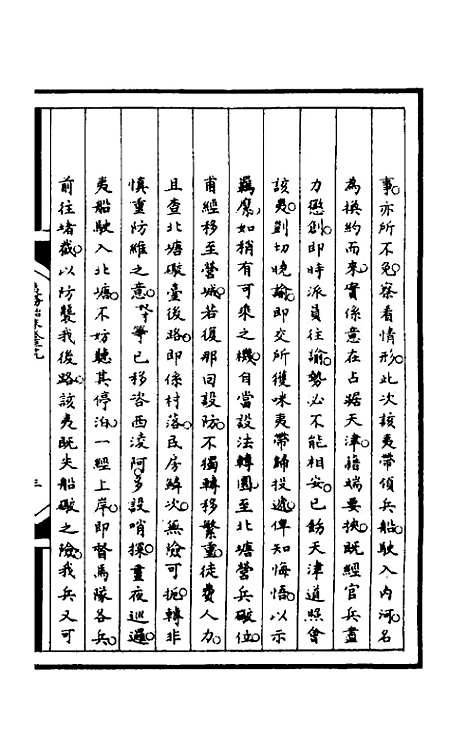 事亦所不免察看情形此次該夷帶領兵船駛入內河名
為換約而來實係意在占踞天津藉端要挾既經官兵盡
力懲創即時派員往諭勢必不能相安已飭天津道照會
該夷剴切曉諭即交所獲咪夷帶歸投遞俾知悔悟以示
羈縻如稍有可乘之機自當設法轉圜至北塘營兵礮位
甫經移至營城若復那回設防不獨轉移繁重徒費人力
且查北塘礮臺後路即係村落民房鱗次無險可扼轉非
慎重防維之意奴才等已移咨西淩阿多設哨探晝夜巡邏
夷船駛入北塘不妨聽其停泊一經上岸即督馬隊各兵
前往堵截以防襲我後路該夷既失船礮之險我兵又可
三